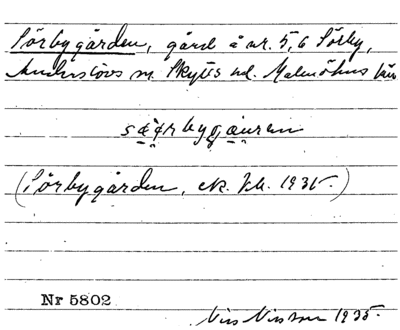 Sörbygården, gård å nr. 5,6 Sörby,
Anderslövs sn. Skytts hd. Malmöhus län
(Sörbygården, ek. kb. 1935.)
Nr 5802
Nils Nilsson 1935.